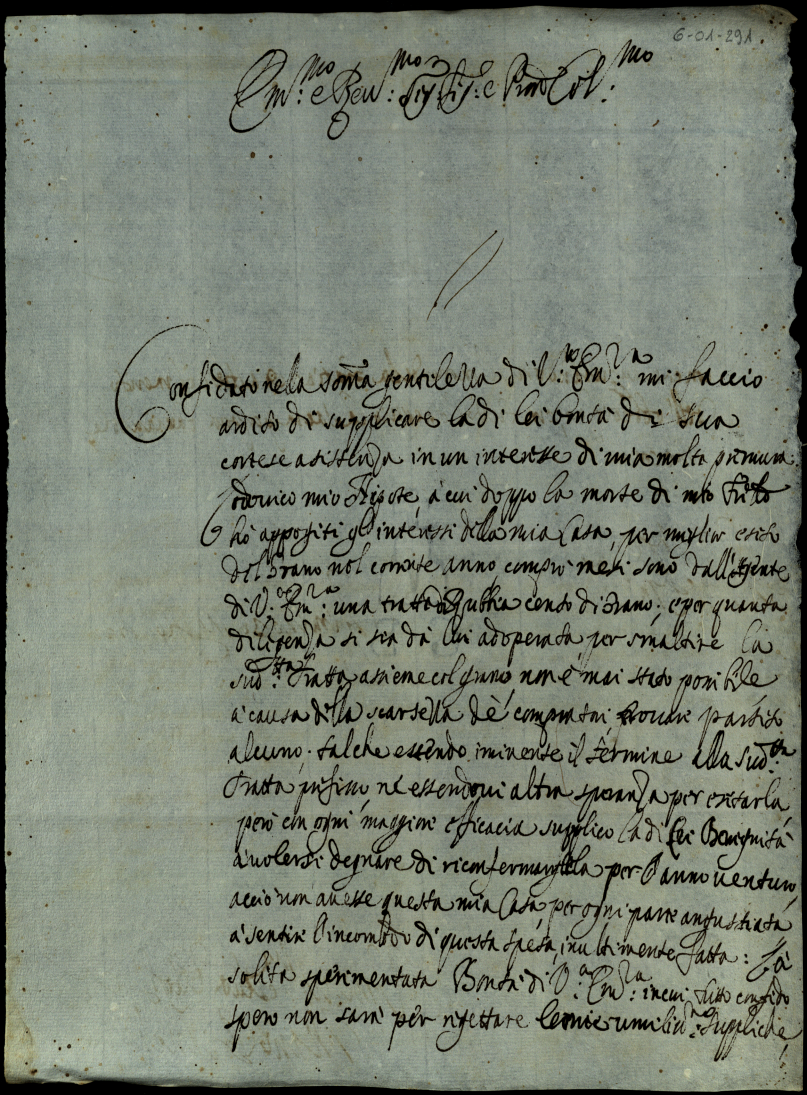 6-01-291.
Em.mo e Reu.mo Sig.r Sig.r e Pron Col.mo
Confidato nela somã gentilezza di V.a Em.za mi faccio
ardito di supplicare la di lei bontà di sua
cortese asistenza in un interesse di mia molta premura
Lodouico mio Nipote, à cui doppo la morte di mio
hò appogiti gl'interessi della mia Casa, per miglior esito
del Grano nel corrente anno, comprò mesi sono dall'Agente
di V.a Em.za una tratta di censo di Grano; e per quanta
diligenza si sia dà lui adoperata, per smaltire la
sud.tta Tratta assieme col grano non è mai stato posibile
à causa della scarsezza dè compratori, trouare partito
alcuno; talche essendo iminente il termine alla sud.tta
Tratta prefisso, nè essendoui altra speranza per esitarla,
però con ogni maggiore efficacia supplico la di Lei Benignità
à volersi degnare di riconfermargliela per l'anno uenturo,
acciò non auesse questa mia Casa, per ogni parte angustiata
à sentire l'incomodo di questa spesa, inultimente fatta: La
solita sperimentata Bontà di V.a Em.za: in cui tutto confido
spero non sarà per rigettare le mie umiliss.me suppliche,